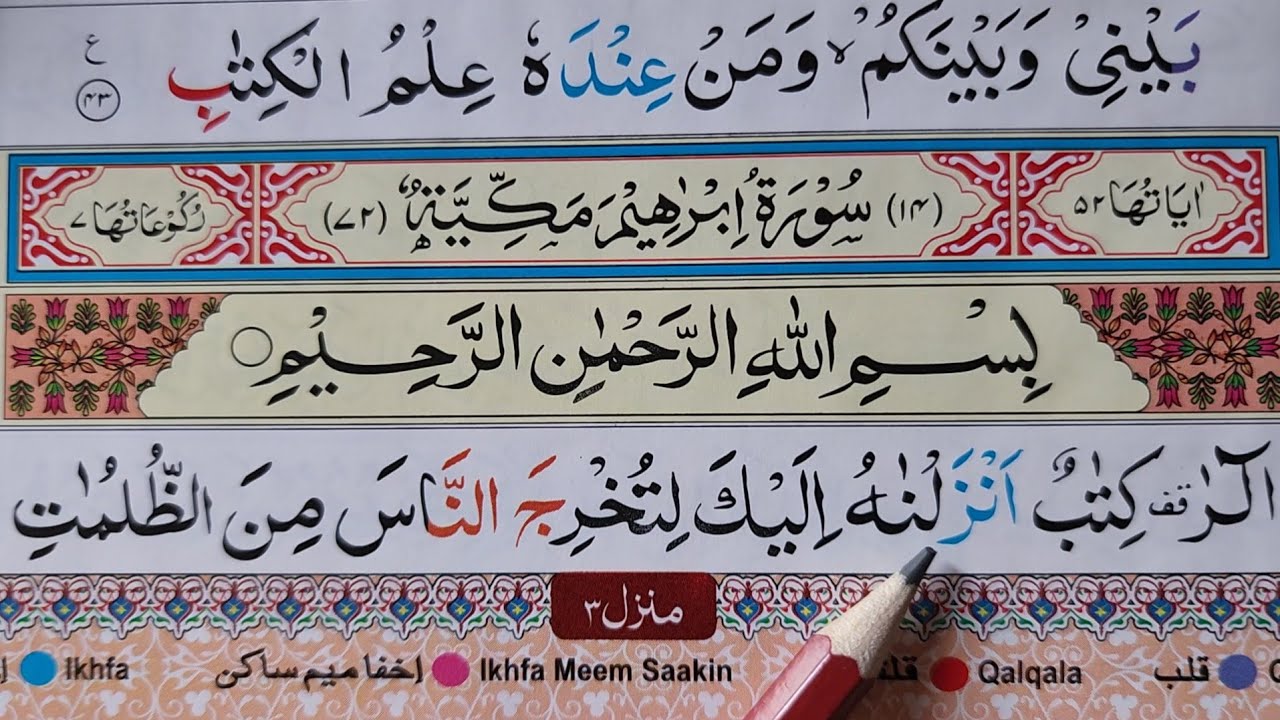 بَيْنِيْ وَبَيْنَكُمْ ۙ وَمَنْ عِنْدَهٗ عِلْمُ الْكِتٰبِ ع ۴۳
اٰيَاتُهَا ۵۲ (۱۴) سُوْرَةُ اِبْرٰهِيْمَ مَكِّيَّةٌ (۷۲) رُكُوْعَاتُهَا ۷
بِسْمِ اللّٰهِ الرَّحْمٰنِ الرَّحِيْمِ ○
الٓرٰ قف كِتٰبٌ اَنْزَلْنٰهُ اِلَيْكَ لِتُخْرِجَ النَّاسَ مِنَ الظُّلُمٰتِ
منزل ۳
Ikhfa إخفا ميم ساكن Ikhfa Meem Saakin Qalqala قلب